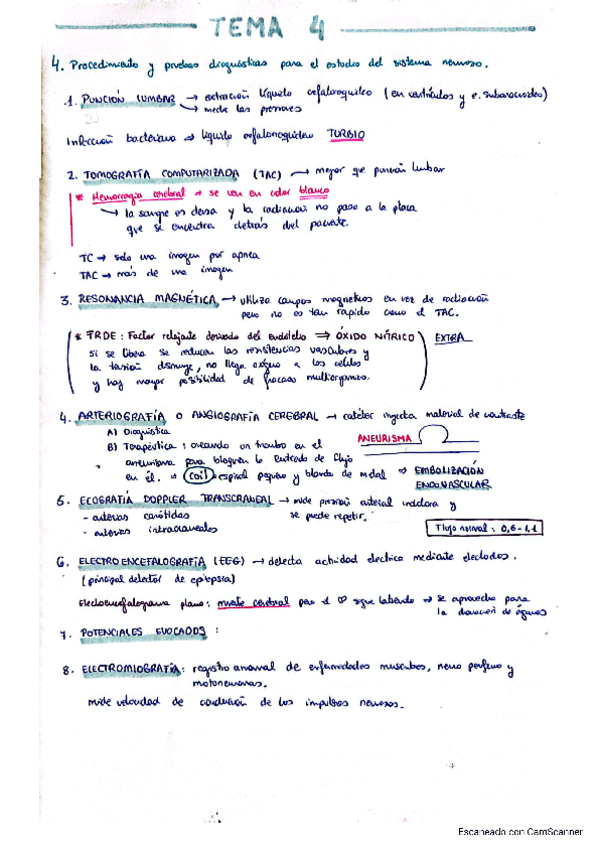 TEMA 4
4. Procedimiento y pruebas diagnósticas para el estudio del sistema nervioso.
1. PUNCIÓN LUMBAR → extracción líquido cefalorraquídeo (en ventrículos y e. subaracnoideo)
→ medir las presiones
Infección bacteriana → líquido cefalorraquídeo TURBIO
2. TOMOGRAFÍA COMPUTARIZADA (TAC) → mejor que punción lumbar
* Hemorragia cerebral → se ven en color blanco
→ la sangre es densa y la radiación no pasa a la placa
que se encuentra detrás del paciente.
TC → solo una imagen por apnea
TAC → más de una imagen
3. RESONANCIA MAGNÉTICA → utiliza campos magnéticos en vez de radiación
pero no es tan rápida como el TAC.
* FRDE: Factor relajante derivado del endotelio ⇒ ÓXIDO NÍTRICO EXTRA
si se libera se reducen las resistencias vasculares y
la tensión disminuye, no llega oxígeno a las células
y hay mayor posibilidad de fracaso multiorgánico.
4. ARTERIOGRAFÍA O ANGIOGRAFÍA CEREBRAL → catéter inyecta material de contraste
A) Diagnóstica
B) Terapéutica: creando un trombo en el ANEURISMA
aneurisma para bloquear la entrada de flujo
en él. → coil espiral pequeño y blando de metal ⇒ EMBOLIZACIÓN
ENDOVASCULAR
5. ECOGRAFÍA DOPPLER TRANSCRANEAL → mide presión arterial indolora y
- arterias carótidas se puede repetir.
- arterias intracraneales Flujo normal: 0,6-1,1
6. ELECTROENCEFALOGRAFÍA (EEG) → detecta actividad eléctrica mediante electrodos.
(principal detector de epilepsia)
Electroencefalograma plano: muerte cerebral pero el ♡ sigue latiendo → se aprovecha para
la donación de órganos
7. POTENCIALES EVOCADOS:
8. ELECTROMIOGRAFÍA: registro anormal de enfermedades musculares, nervio periférico y
motoneuronas.
mide velocidad de conducción de los impulsos nerviosos.
Escaneado con CamScanner